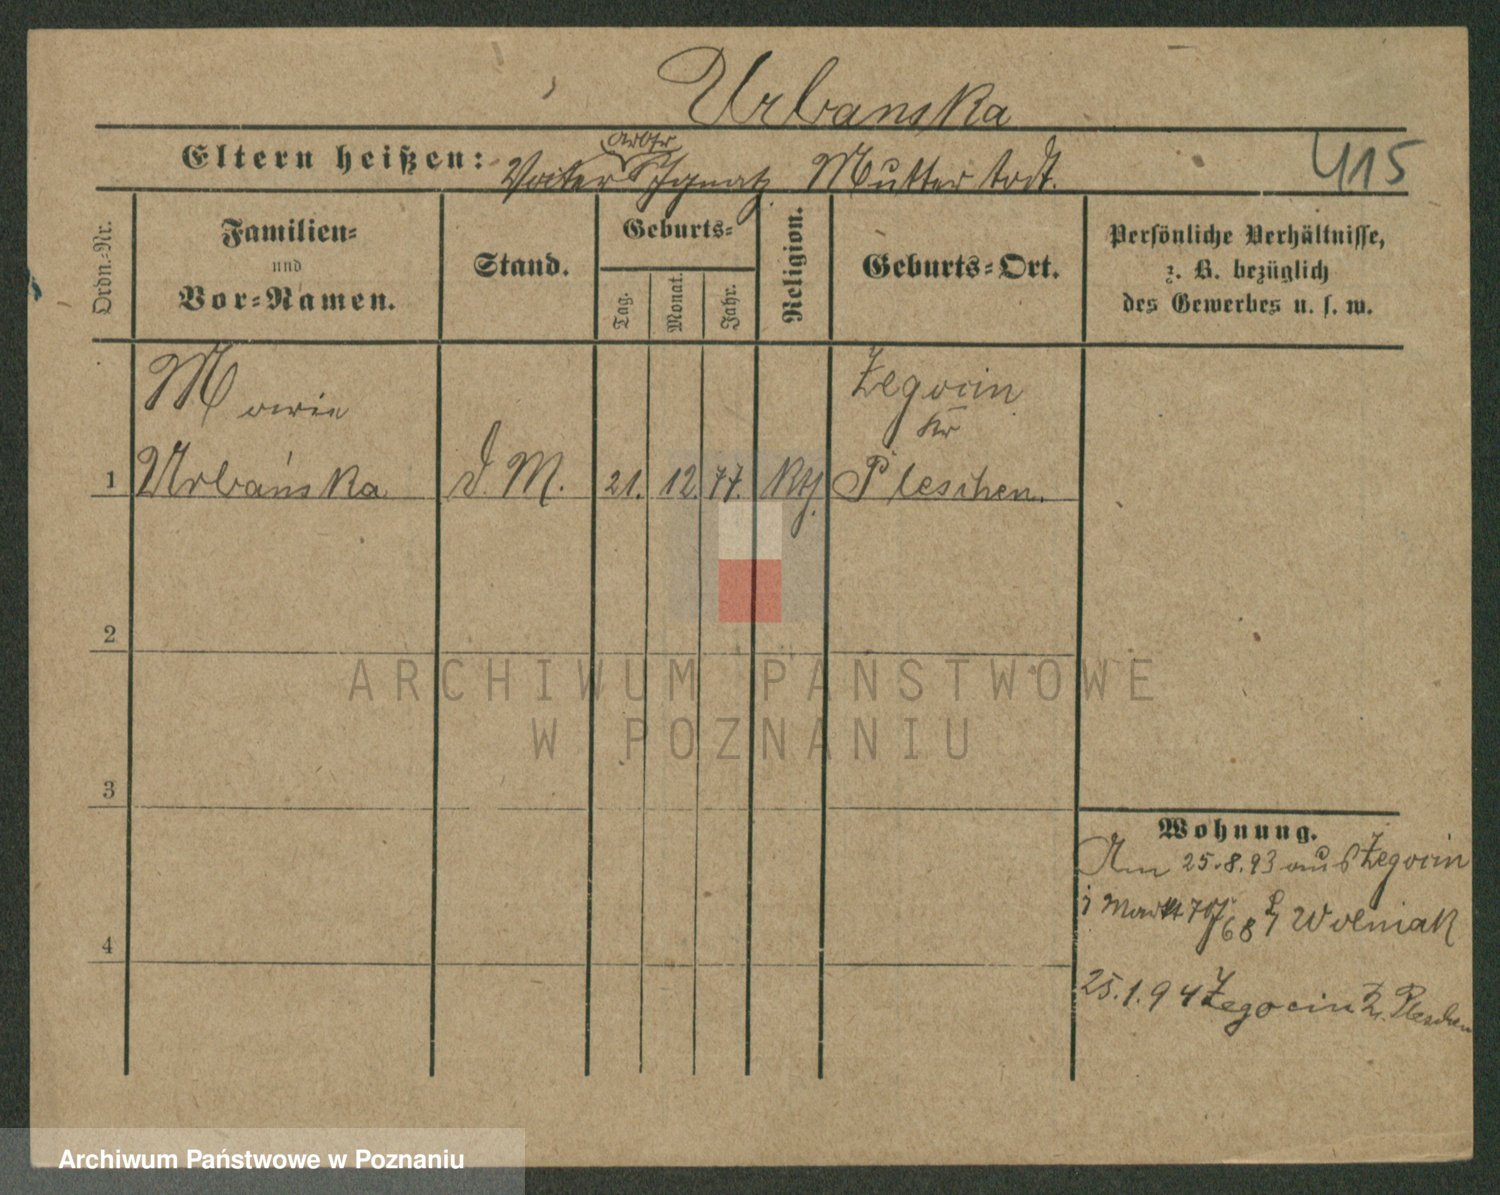 Urbanska
415
Eltern heißen: Vater Arbtr Ignatz Mutter todt.
Ordn.-Nr.
Familien-
und
Vor-Namen.
Stand.
Geburts-
Tag.
Monat.
Jahr.
Religion.
Geburts-Ort.
Persönliche Verhältnisse,
z. B. bezüglich
des Gewerbes u. s. w.
Marie
Żegocin
Kr
1 Urbańska D. M. 21. 12. 77. Kth. Pleschen.
2
3
4
Wohnung.
Am 25.8.93 aus Żegocin
Markt 68 Wolniak
25.1.94 Żegocin Kr. Pleschen
ARCHIWUM PAŃSTWOWE
W POZNANIU
Archiwum Państwowe w Poznaniu